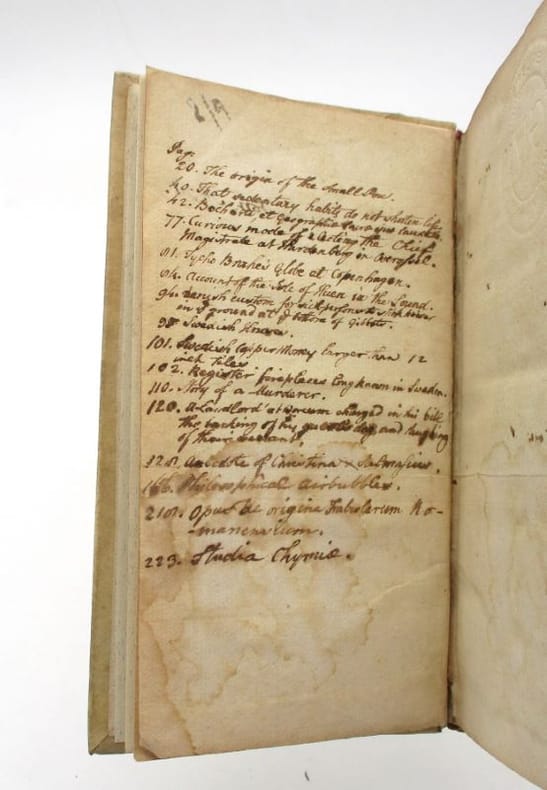 219
Pag.
20. The origin of the Small Pox.
40. That sedentary habits do not shorten life
42. Bocharti et Geographia sacra
77. Curious mode of electing the Chief
Magistrate at Hardenberg in Overyssel.
81. Tycho Brahe's Globe at Copenhagen.
84. Account of the Isle of Huen in the Sound.
94. Danish custom for sick persons to
in ye ground at ye bottom of Gibbets.
98 Swedish
101. Swedish Copper Money larger than 12
inch Tiles
102. Register fireplaces long known in Sweden.
110. Story of a Murderer.
120. A Landlord at charged in his bill
the barking of his dog and the
of their servant.
128. Anecdote of Christina & Salmasius.
Philosophical airbubbles.
210. Opus de origine Fabularum Ro-
-manensium.
223. Studia Chymiæ.